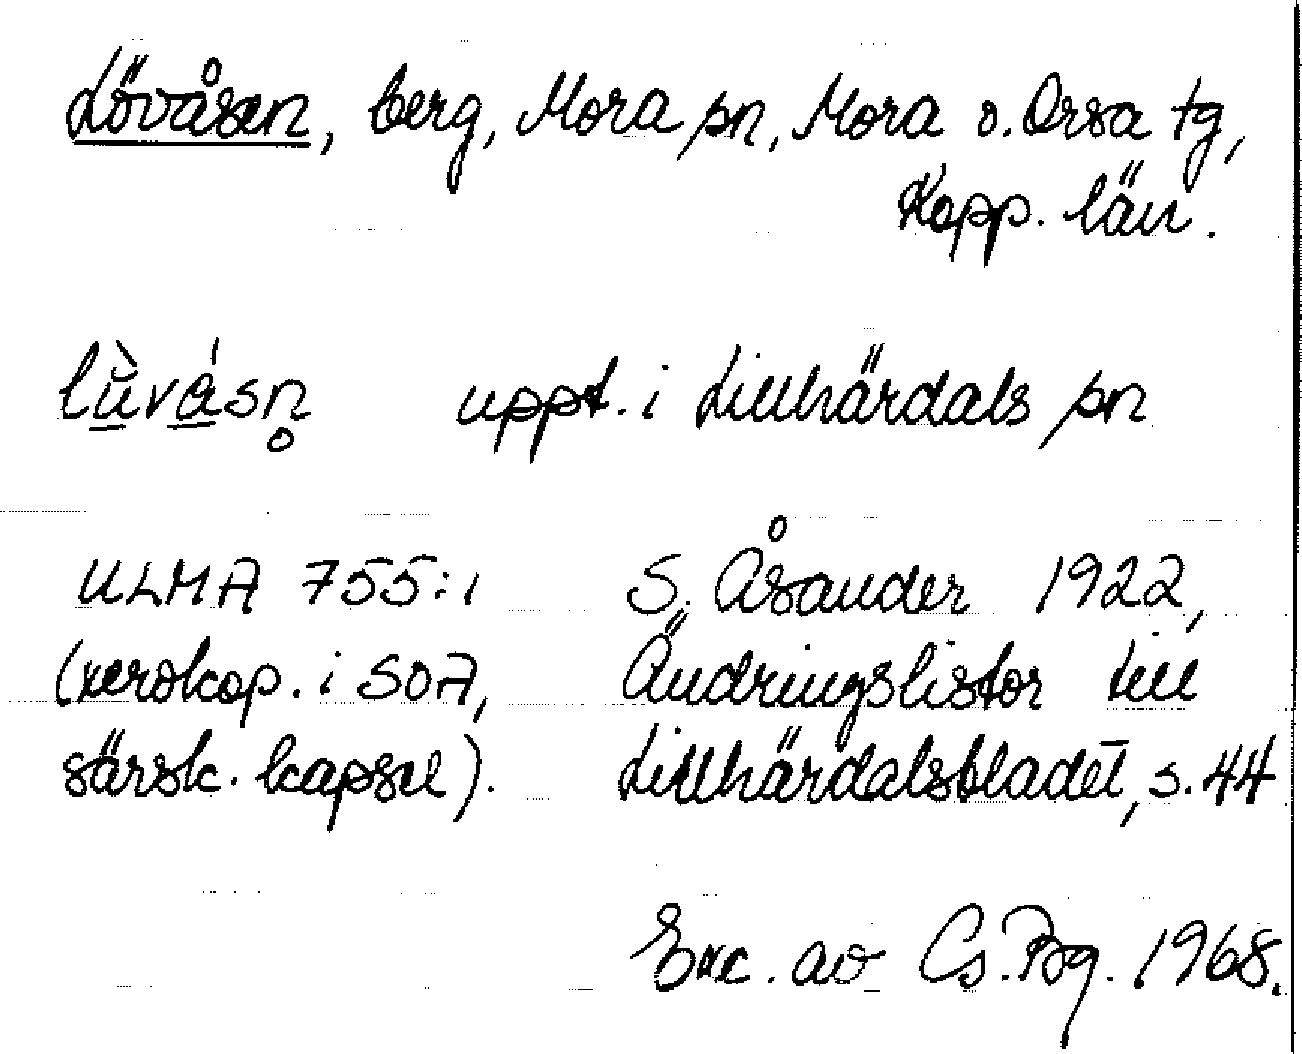 Lövåsen, berg, Mora sn, Mora o. Orsa tg,
Kopp. län.
lùvásn̥ uppt. i Lillhärdals sn
ULMA 755:1 S. Åsander 1922,
(xerokop. i SOA, Ändringslistor till
särsk. kapsel). Lillhärdalsbladet, s. 44
Exc. av Cs. Bg. 1968.